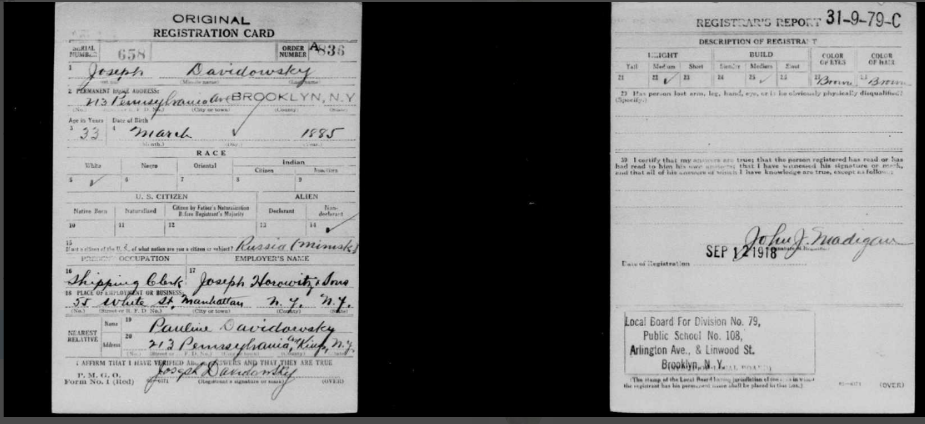 ORIGINAL
REGISTRATION CARD
SERIAL NUMBER 658 ORDER NUMBER A836
1 Joseph Davidowsky
2 PERMANENT HOME ADDRESS:
213 Pennsylvania Ave BROOKLYN, N.Y
(No.) (City or town) (County) (State)
Age in Years Date of Birth
3 33 4 March ✓ 1885
(Month.) (Day.) (Year.)
RACE
White Negro Oriental Indian
Citizen Noncitizen
5 ✓ 6 7 8 9
U. S. CITIZEN ALIEN
Native Born Naturalized Citizen by Father's Naturalization Before Registrant's Majority Declarant Non-declarant
10 11 12 13 14 ✓
15 If not a citizen of the U. S., of what nation are you a citizen or subject? Russia (Minsk)
PRESENT OCCUPATION EMPLOYER'S NAME
16 Shipping Clerk 17 Joseph Horowitz & Sons
18 PLACE OF EMPLOYMENT OR BUSINESS:
55 White St, Manhattan N.Y. N.Y.
(No.) (Street or R. F. D. No.) (City or town) (County) (State)
NEAREST RELATIVE Name 19 Pauline Davidowsky
20 213 Pennsylvania Av, Kings, N.Y.
I AFFIRM THAT I HAVE VERIFIED ABOVE ANSWERS AND THAT THEY ARE TRUE
P. M. G. O.
Form No. 1 (Red) Joseph Davidowsky
(Registrant's signature or mark) (OVER)
REGISTRAR'S REPORT 31-9-79-C
DESCRIPTION OF REGISTRANT
HEIGHT BUILD COLOR OF EYES COLOR OF HAIR
Tall Medium Short Slender Medium Stout
21 22 ✓ 23 24 25 ✓ 26 27 Brown 28 Brown
29 Has person lost arm, leg, hand, eye, or is he obviously physically disqualified?
(Specify.)
30 I certify that my answers are true; that the person registered has read or has
had read to him his own answers; that I have witnessed his signature or mark,
and that all of his answers of which I have knowledge are true, except as follows:
John J. Madigan
Date of Registration SEP 12 1918
Local Board For Division No. 79,
Public School No. 108,
Arlington Ave., & Linwood St.
Brooklyn, N. Y.
(The stamp of the Local Board having jurisdiction of the area in which
the registrant has his permanent home shall be placed in this box.)
(OVER)